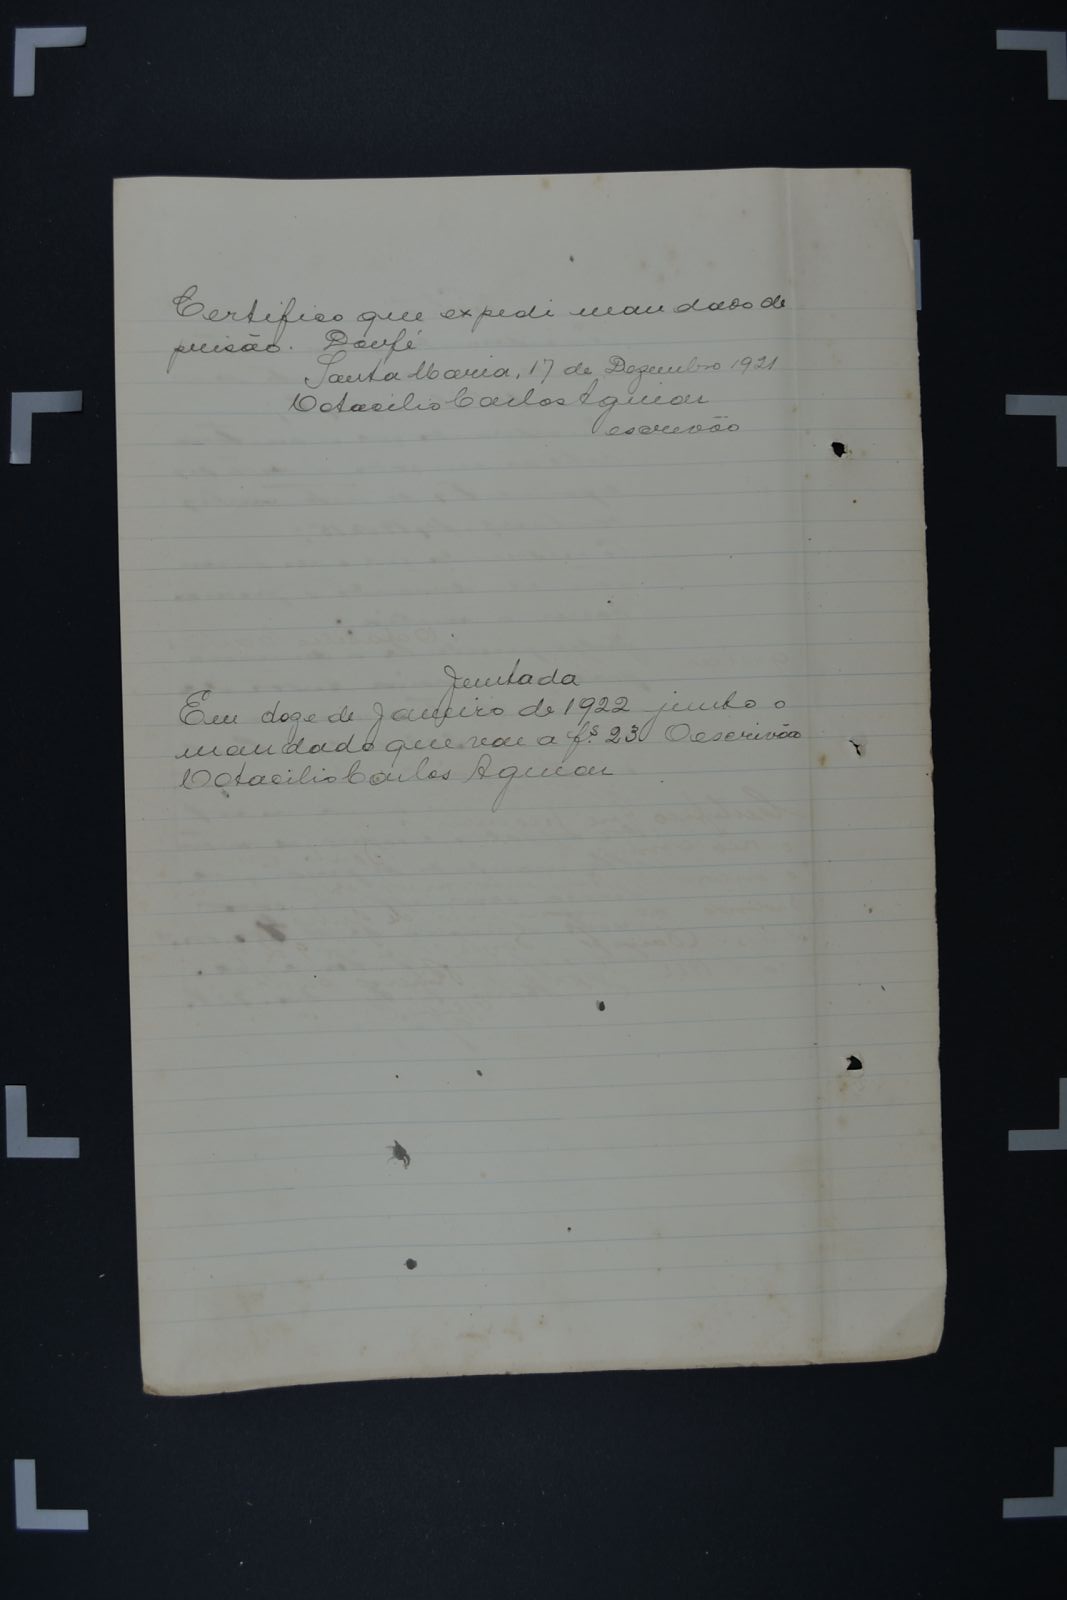 Certifico que expedi mandado de
prisão. Doufé
Santa Maria, 17 de Dezembro 1921
Octacilio Carlos Aguiar
escrivão
Juntada
Em doze de Janeiro de 1922 junto o
mandado que vae a fs. 23 O escrivão
Octacilio Carlos Aguiar